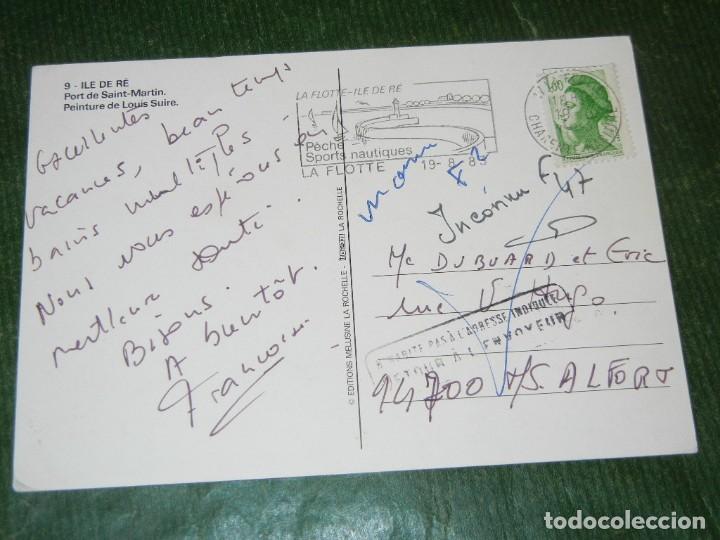 9 - ILE DE RÉ
Port de Saint-Martin.
Peinture de Louis Suire.
Excellentes
vacances, beau temps
bains multiples -
Nous vous espérons en
meilleure santé.
Bisous.
A bientôt.
Françoise
© EDITIONS MELUSINE LA ROCHELLE - LA ROCHELLE
LA FLOTTE-ILE DE RÉ
Pêche
Sports nautiques
LA FLOTTE 19-8-85
inconnu
F2
Inconnu F 47
Mc DUBUARD et Eric
rue V. Hugo
N'HABITE PAS À L'ADRESSE INDIQUÉE
RETOUR À L'ENVOYEUR
94700 M/S. ALFORT
todocoleccion
todocoleccion.net